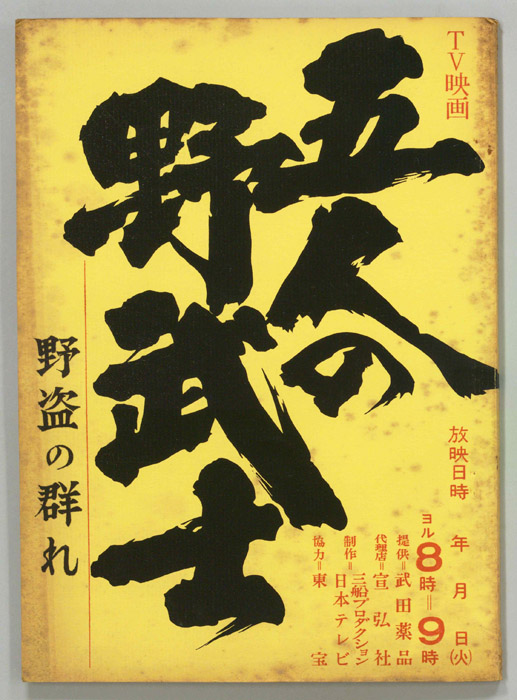 TV映画
五人の
野武士
野盗の群れ
放映日時 年 月 日(火)
ヨル8時=9時
提供=武田薬品
代理店=宣弘社
制作=三船プロダクション
日本テレビ
協力=東宝